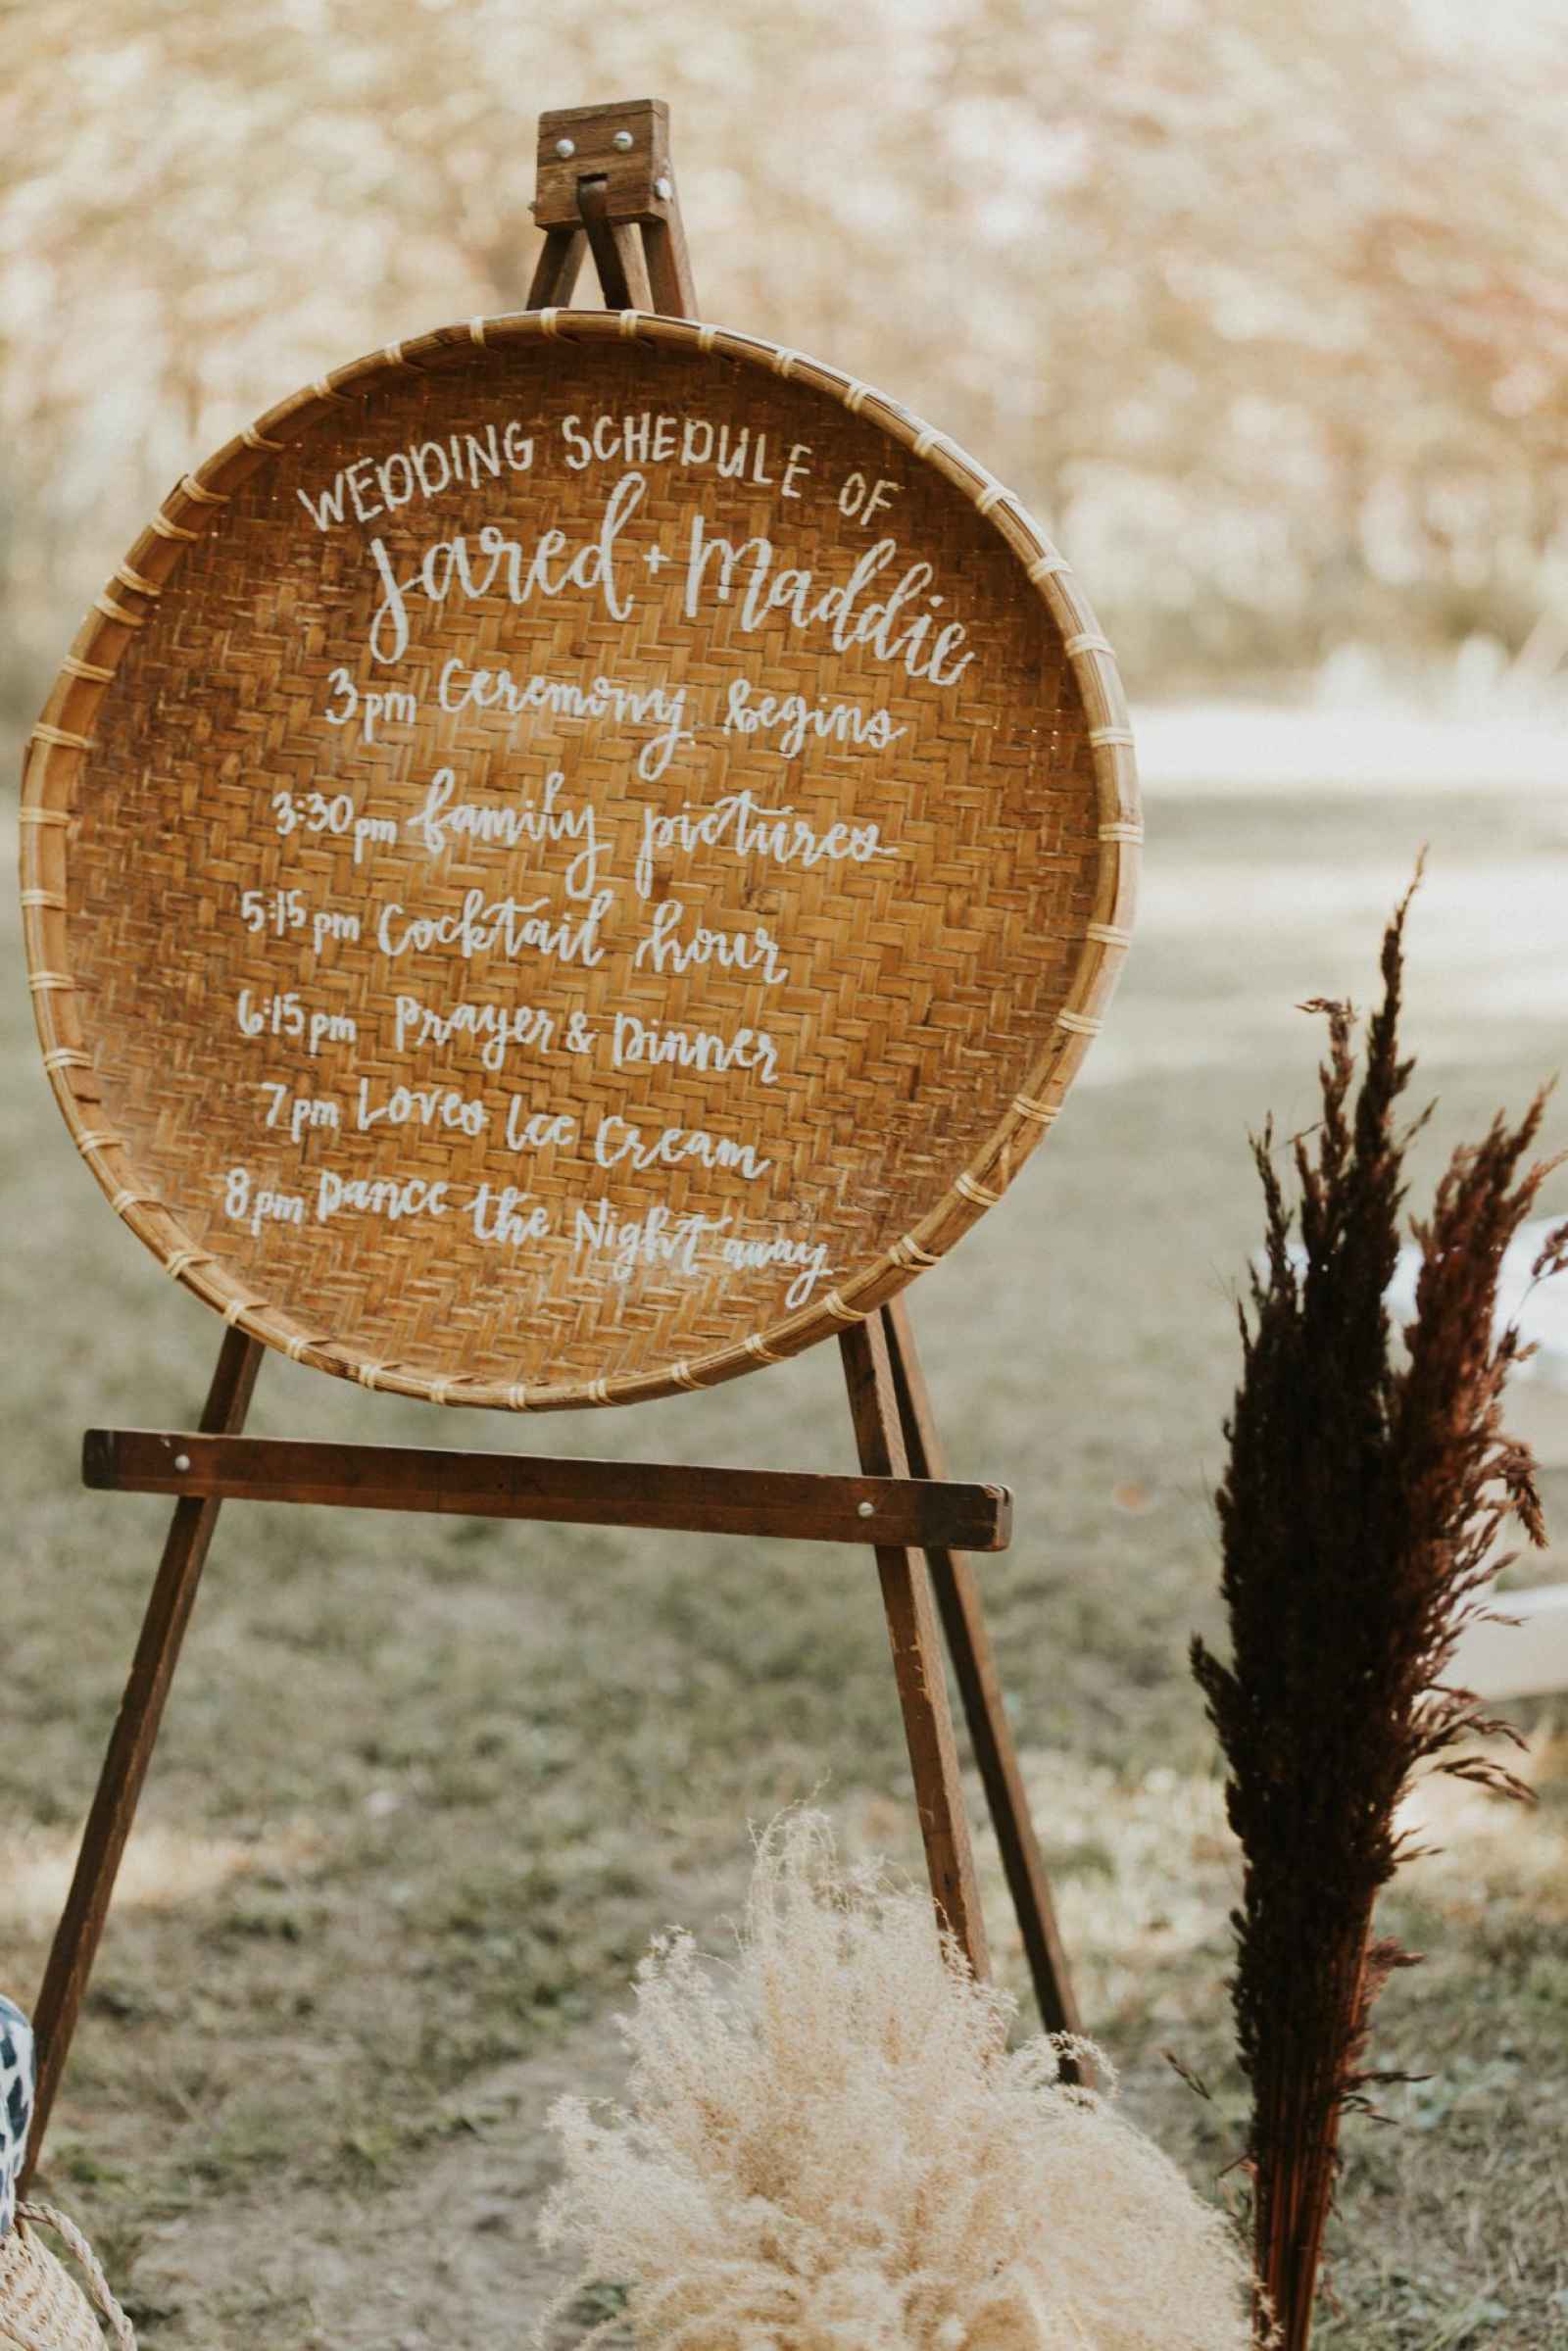 WEDDING SCHEDULE OF
Jared + Maddie
3pm Ceremony begins
3:30pm family pictures
5:15pm Cocktail hour
6:15pm Prayer & Dinner
7pm Loves Ice Cream
8pm Dance the Night away